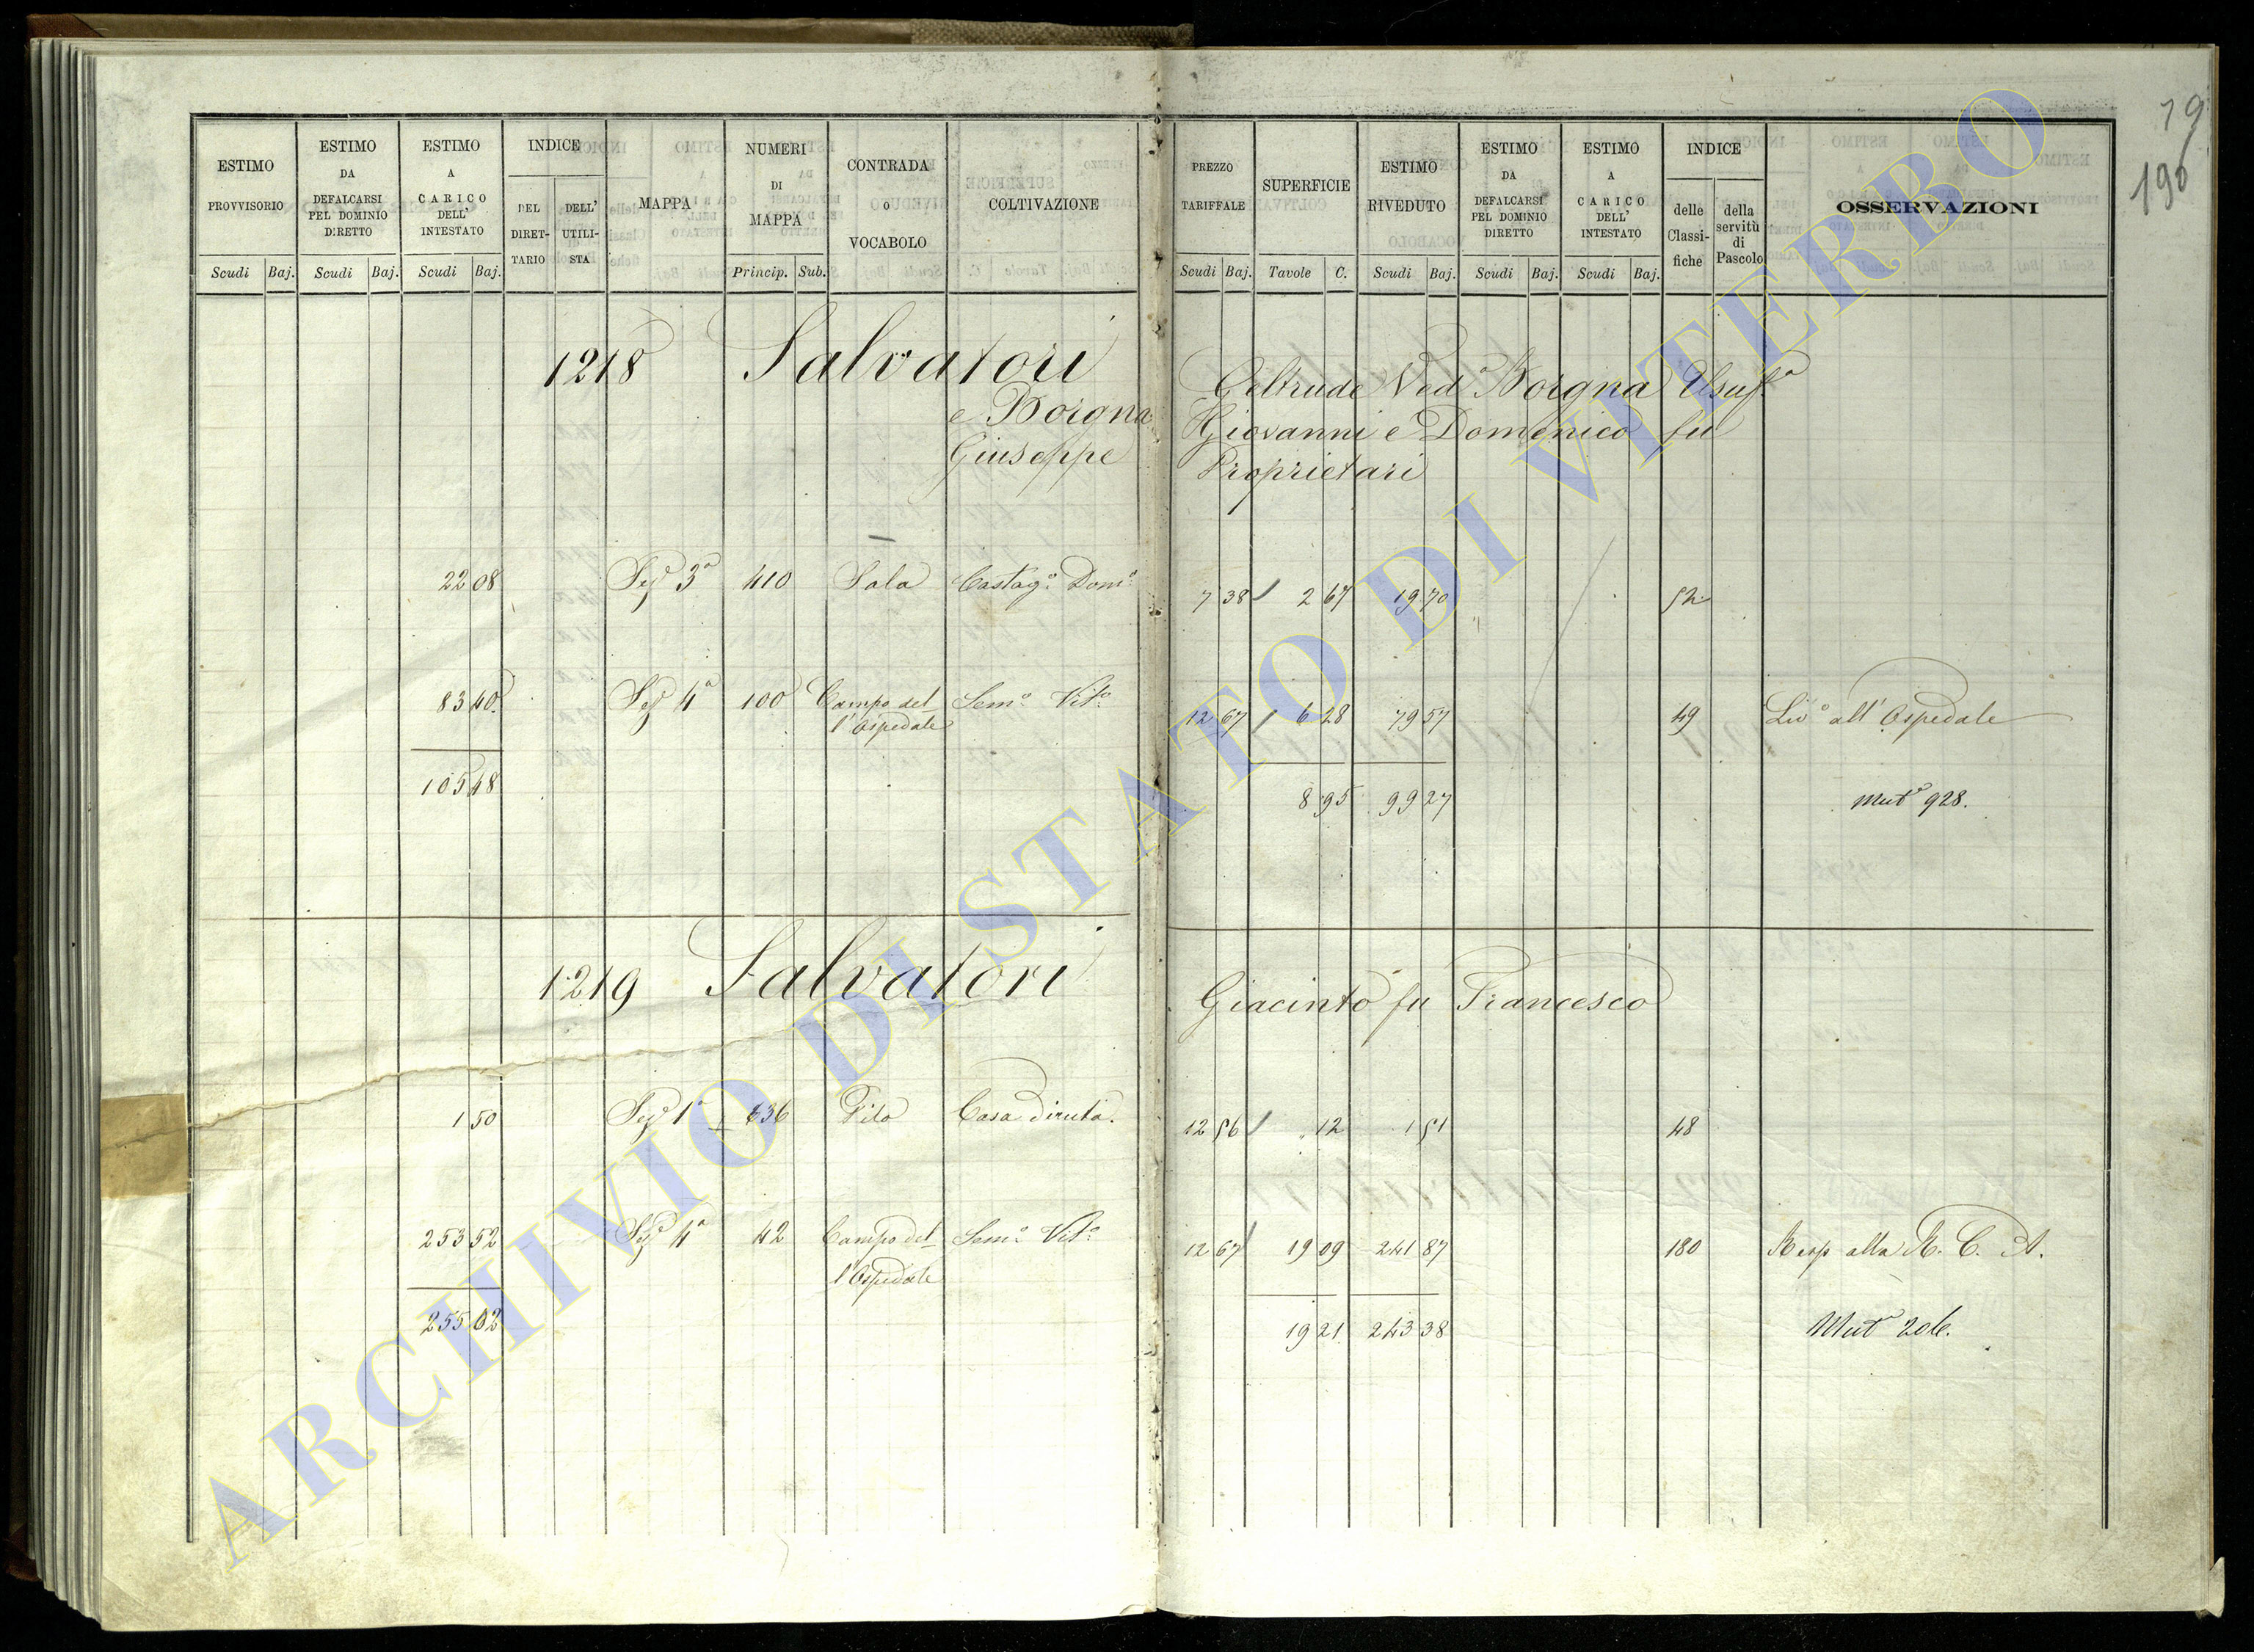 19
190
ESTIMO PROVVISORIO
ESTIMO DA DEFALCARSI PEL DOMINIO DIRETTO
ESTIMO A CARICO DELL' INTESTATO
INDICE
DEL DIRETTARIO
DELL' UTILISTA
MAPPA
NUMERI DI MAPPA
CONTRADA O VOCABOLO
COLTIVAZIONE
PREZZO TARIFFALE
SUPERFICIE
ESTIMO RIVEDUTO
ESTIMO DA DEFALCARSI PEL DOMINIO DIRETTO
ESTIMO A CARICO DELL' INTESTATO
INDICE
delle Classifiche
della servitù di Pascolo
OSSERVAZIONI
Scudi Baj. Scudi Baj. Scudi Baj. Princip. Sub. Scudi Baj. Tavole C. Scudi Baj. Scudi Baj. Scudi Baj.
1218 Salvatori Geltrude Ved.a Borgna Usuf.a
e Borgna Giovanni e Domenico fu
Giuseppe Proprietari
22 08 Sez.e 3a 410 Sala Castag.o Dom.o 7 38 2 67 19 70 52
83 40 Sez.e 4a 100 Campo del- Sem.o Vit.o 12 67 6 28 79 57 49 Liv.o all' Ospedale
l'Ospedale
105 48 8 95 99 27 Mut.a 928.
1219 Salvatori Giacinto fu Francesco
1 50 Sez.e 1a 636 Casa diruta. 12 56 12 1 51 48
253 52 Sez.e 4a 42 Campo del- Sem.o Vit.o 12 67 19 09 241 87 180 Resp alla R. C. A.
l'Ospedale
255 02 19 21 243 38 Mut.a
ARCHIVIO DI STATO DI VITERBO